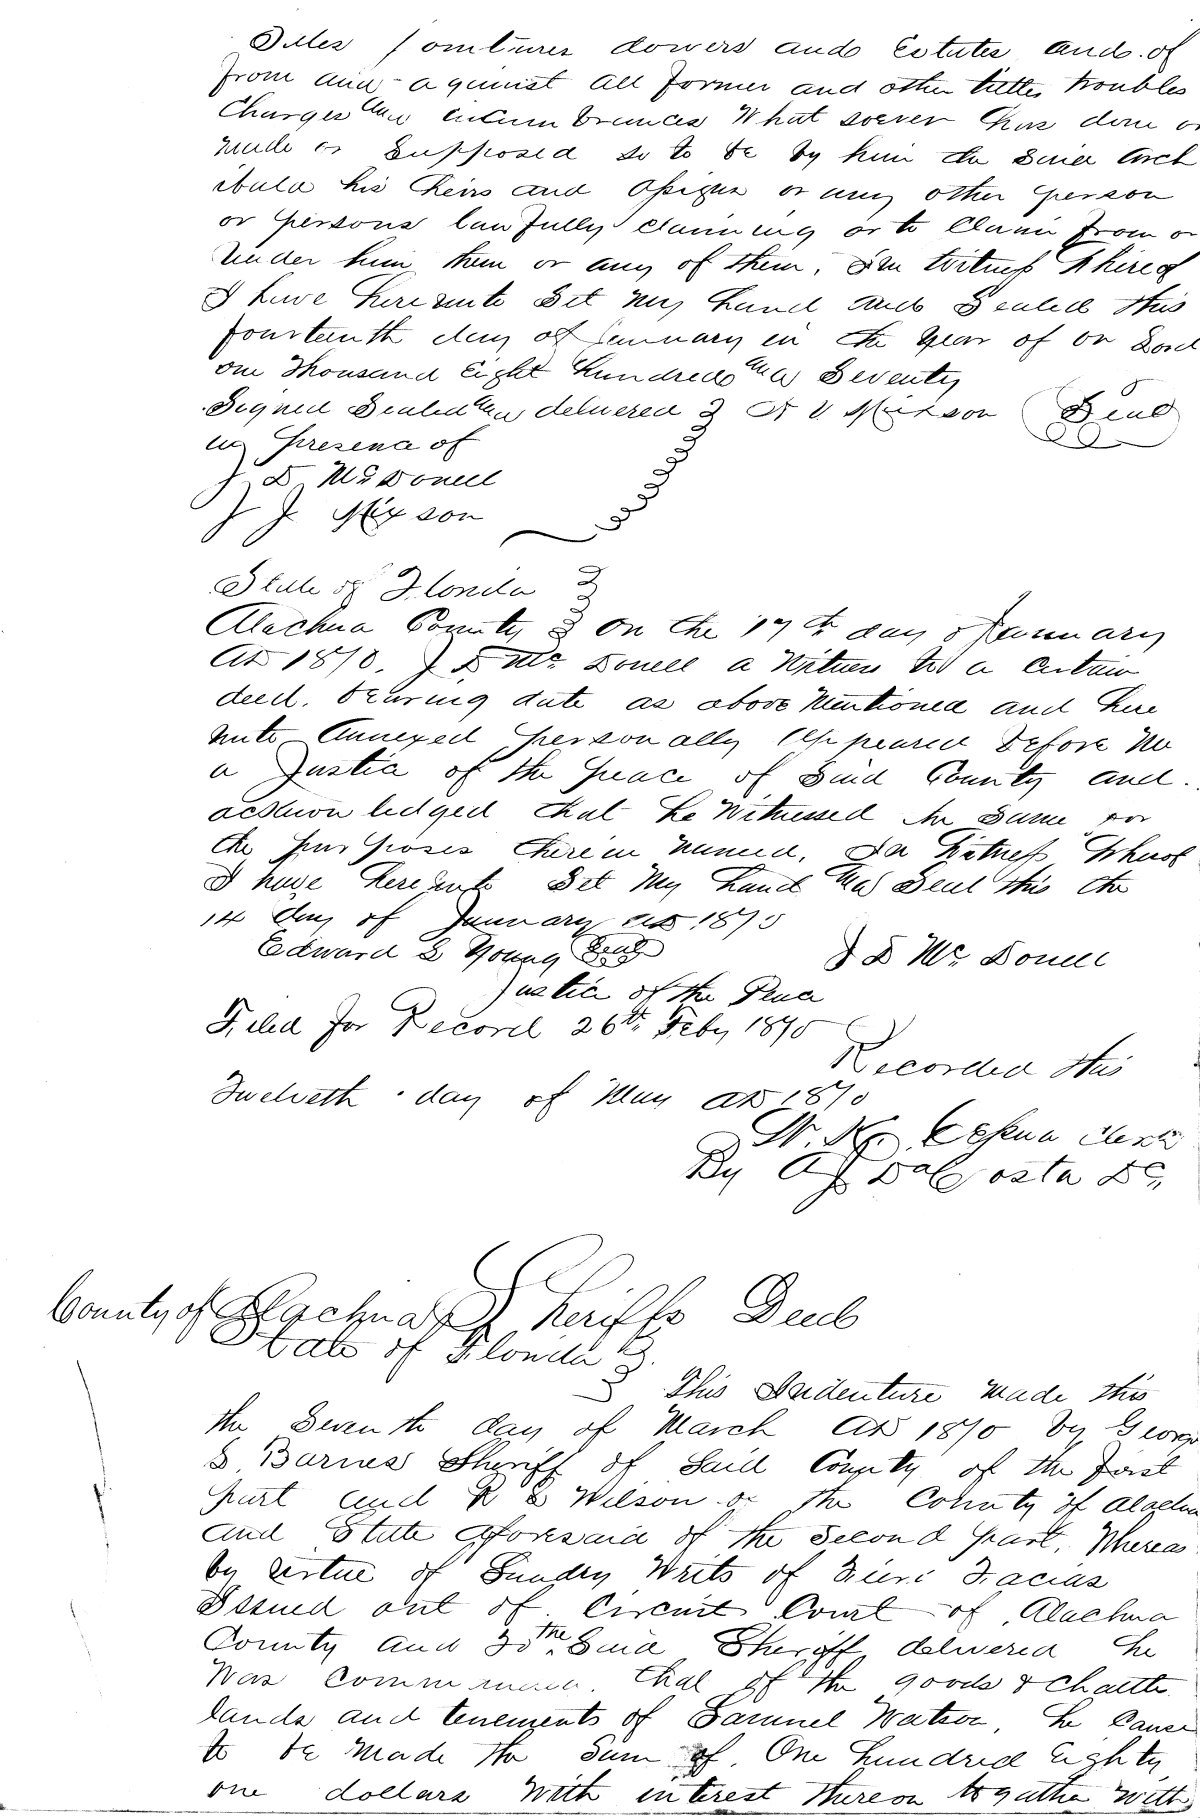 Titles Jointures dowers and Estates and of
from and against all former and other titles troubles
Charges and incumbrances What soever has done or
made or Supposed so to be by him the Said Arch
ibald his heirs and assigns or any other person
or persons lawfully claiming or to Claim from or
Under him them or any of them, In Witness Whereof
I have hereunto Set my hand and Sealed this
fourteenth day of January in the Year of our Lord
one thousand Eight hundred and Seventy
Signed Sealed and delivered A V Mixson Seal
in presence of
J D McDonell
J J Mixson
State of Florida
Alachua County On the 14th day of January
AD 1870. J D Mc Donell a Witness to a certain
deed. bearing date as above Mentioned and here
unto Annexed personally appeared before Me
a Justice of the peace of Said County and
acknowledged that he Witnessed the Same for
the purposes therein named. In Witness Whereof
I have hereunto Set My hand and Seal this the
14 day of January AD 1870
Edward S Young Seal J D Mc Donell
Justice of the Peace
Filed for Record 26th Feby 1870
Recorded this
Twelveth day of May AD 1870
W. K. Cessna Clerk
By A J DaCosta DC,
County of Alachua Sheriffs Deed
State of Florida
This Indenture Made this
the Seventh day of March AD 1870 by George
S Barnes Sheriff of Said County of the first
part and R E Wilson of the County of Alachua
and State aforesaid of the Second part, Whereas
by virtue of Sundry Writs of Fieri Facias
Issued out of Circuit Court of Alachua
County and To the Said Sheriff delivered he
Was commanded. that of the goods & Chattle
lands and tenements of Samuel Watson, he Cause
to be Made the Sum of. One hundred Eighty
one dollars With interest thereon togather With